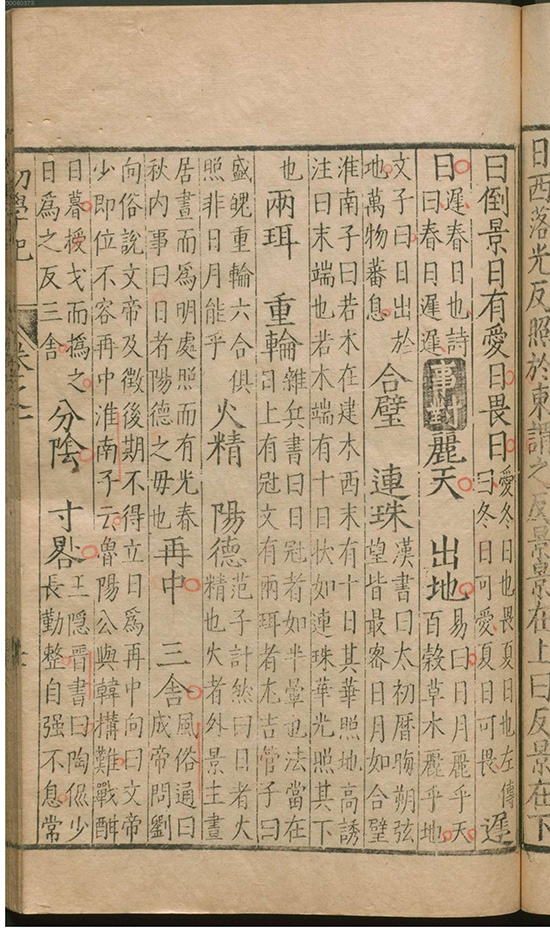 日西落光反照於東謂之反景景在上曰反景在下
曰倒景日有愛日畏日愛冬日也畏夏日也左傳曰冬日可愛夏日可畏遲
日遲春日也詩曰春日遲遲事對麗天 出地易曰日月麗乎天百穀草木麗乎地
文子曰日出於地萬物蕃息合璧 連珠漢書曰太初曆晦朔弦望皆最密日月如合璧
淮南子曰若木在建木西末有十日其華照地高誘注曰末端也若木端有十日狀如連珠華光照其下
也兩珥 重輪雜兵書曰日冠者如半暈也法當在日上有冠又有兩珥者尤吉管子曰
盛魄重輪六合俱照非日月能乎火精 陽德范子計然曰日者火精也火者外景主晝
居晝而爲明處照而有光春秋内事曰日者陽德之毋也再中 三舍風俗通曰成帝問劉
向俗說文帝及徵後期不得立日爲再中向曰文帝少即位不容再中淮南子云魯陽公與韓構難戰酣
日暮援戈而撝之日爲之反三舍分陰 寸晷王隱晉書曰陶侃少長勤整自强不息常
初學記 卷之一